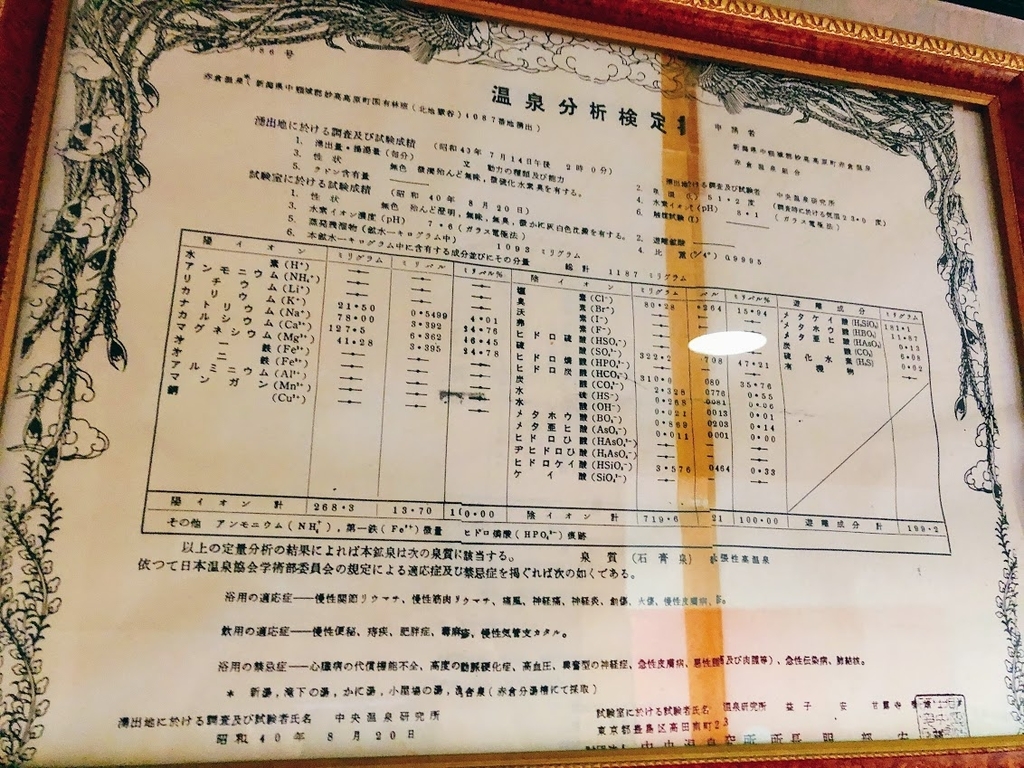 986 号
温泉分析検定
赤倉温泉 新潟県中頸城郡妙高高原町国有林班(北地獄谷)4087番地湧出)
申請者
新潟県中頸城郡妙高高原町赤倉温泉
赤倉温泉組合
湧出地に於ける調査及び試験成績 (昭和43年 7月14日午後 2時0分)
湧出地に於ける調査及び試験者 中央温泉研究所
1. 湧出量・揚湯量(毎分) 動力の種類及び能力
2. 泉温 51・2度 (調査時に於ける気温23・0度)
3. 性状 無色 微濁殆んど無味,微硫化水素臭を有する。
4. 水素イオン(pH) 8・1 (ガラス電極法)
5. ラドン含有量
6. 触媒試験
試験室に於ける試験成績 (昭和40年 8月20日)
1. 性状 無色 殆んど澄明,無味,無臭,微かに灰白色沈澱を有する。
2. 遊離鉱酸
3. 水素イオン濃度(pH) 7・6(ガラス電極法)
4. 比重 0.9995
5. 蒸発残渣物(鉱水一キログラム中) 1093 ミリグラム
6. 本鉱水一キログラム中に含有する成分並びにその分量 総計 1187 ミリグラム
陽イオン ミリグラム ミリバル ミリバル%
水素(H⁺) —
アンモニウム(NH₄⁺) —
リチウム(Li⁺) —
カリウム(K⁺) 21・50 0・5499 4・01
ナトリウム(Na⁺) 78・00 3・392 24・76
カルシウム(Ca²⁺) 127・5 6・362 46・45
マグネシウム(Mg²⁺) 41・28 3・395 24・78
鉄(Fe²⁺) —
鉄(Fe³⁺) —
アルミニウム(Al³⁺) —
マンガン(Mn²⁺) —
銅(Cu²⁺) —
陰イオン ミリグラム バル ミリバル%
塩素(Cl⁻) 80・28 264 15・94
臭素(Br⁻) —
沃素(I⁻) —
弗素(F⁻) —
ヒドロ硫酸(HSO₄⁻) —
硫酸(SO₄²⁻) 322・2 708 47・21
ヒドロ燐酸(HPO₄²⁻) —
ヒドロ炭酸(HCO₃⁻) 310・0 080 35・76
炭酸(CO₃²⁻) 2・328 0776 0・55
水硫(HS⁻) 0・268 0081 0・06
水酸(OH⁻) 0・021 0013 0・01
メタホウ酸(BO₂⁻) 0・869 0203 0・14
メタ亜ヒ酸(AsO₂⁻) 0・011 0001 0・00
ヒドロひ酸(HAsO₄²⁻) —
ヂヒドロひ酸(H₂AsO₄⁻) —
ヒドロケイ酸(HSiO₃⁻) 3・576 0464 0・33
ケイ酸(SiO₃²⁻) —
遊離成分 ミリグラム
メタケイ酸(H₂SiO₃) 181・1
メタホウ酸(HBO₂) 11・87
メタ亜ヒ酸(HAsO₂) 0・13
炭酸(CO₂) 6・08
硫化水素(H₂S) 0・02
有機物 —
陽イオン計 268・3 13・70 100・00
陰イオン計 719・6 100・00
遊離成分計 199・2
その他 アンモニウム(NH₄⁺),第一鉄(Fe²⁺)微量 ヒドロ燐酸(HPO₄²⁻)痕跡
以上の定量分析の結果によれば本鉱泉は次の泉質に該当する。 泉質(石膏泉) 張性高温泉
依つて日本温泉協会学術部委員会の規定による適応症及び禁忌症を掲ぐれば次の如くである。
浴用の適応症——慢性関節リウマチ、慢性筋肉リウマチ、痛風、神経痛、神経炎、創傷、火傷、慢性皮膚病、
飲用の適応症——慢性便秘、痔疾、肥胖症、蕁麻疹、慢性気管支カタル。
浴用の禁忌症——心臓病の代償機能不全、高度の動脈硬化症、高血圧、興奮型の神経症、急性皮膚病、悪性腫瘍及び肉腫等)、急性伝染病、肺結核。
* 新湯,滝下の湯,かに湯,小屋場の湯,浅舎泉(赤倉分湯槽にて採取)
湧出地に於ける調査及び試験者氏名 中央温泉研究所
昭和40年 8月20日
試験室に於ける試験者氏名 温泉研究所 益子 安 甘露寺
東京都豊島区高田南町2
財団法人 中央温泉研究所 所長 服部安蔵